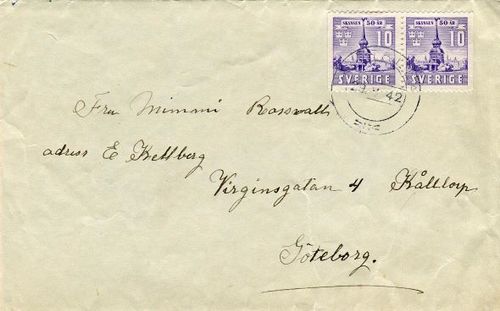 SKANSEN 50 ÅR SKANSEN 50 ÅR
10 10
SVERIGE SVERIGE
42
Fru Mimmi Rosvall
adress E Kellberg
Virginsgatan 4 Kålltorp
Göteborg.